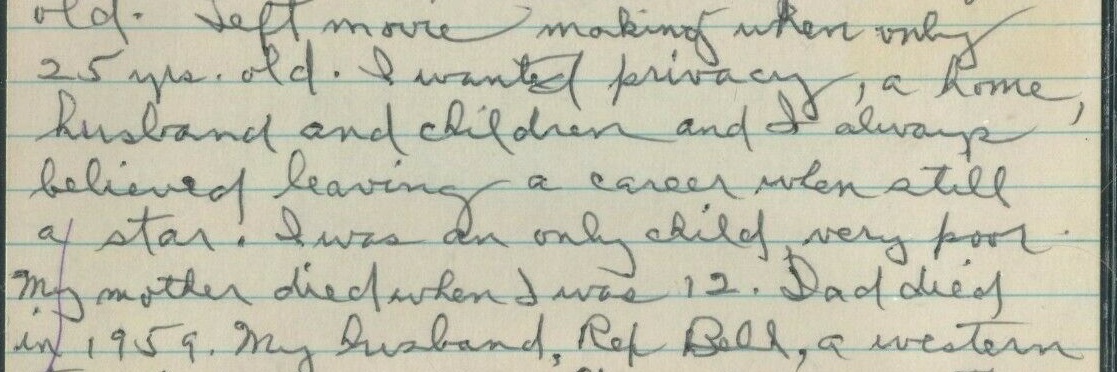 old. Left movie making when only
25 yrs. old. I wanted privacy, a home,
husband and children and I always
believed leaving a career when still
a star. I was an only child, very poor.
My mother died when I was 12. Dad died
in 1959. My husband, Rex Bell, a western